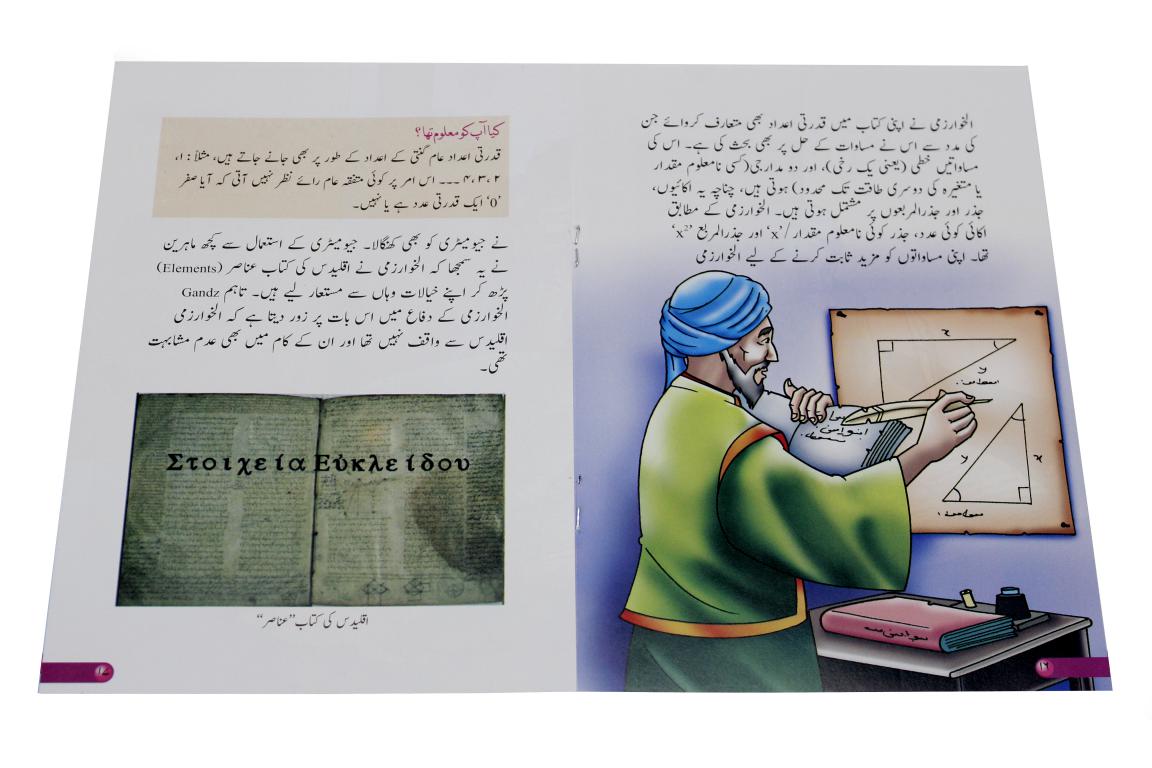 الخوارزمی نے اپنی کتاب میں قدرتی اعداد بھی متعارف کروائے جن
کی مدد سے اس نے مساوات کے حل پر بھی بحث کی ہے۔ اس کی
مساواتیں خطی (یعنی یک رخی)، اور دو مدارجی(کسی نامعلوم مقدار
یا متغیرہ کی دوسری طاقت تک محدود) ہوتی ہیں، چناچہ یہ اکائیوں،
جذر اور جذرالمربعوں پر مشتمل ہوتی ہیں۔ الخوارزمی کے مطابق
اکائی کوئی عدد، جذر کوئی نامعلوم مقدار/'x' اور جذرالمربع 'x²'
تھا۔ اپنی مساواتوں کو مزید ثابت کرنے کے لیے الخوارزمی
x
y
y
x
۱۶
کیا آپ کو معلوم تھا؟
قدرتی اعداد عام گنتی کے اعداد کے طور پر بھی جانے جاتے ہیں، مثلاً: ۱،
۲،۳،۴ ۔۔۔ اس امر پر کوئی متفقہ عام رائے نظر نہیں آتی کہ آیا صفر
'0' ایک قدرتی عدد ہے یا نہیں۔
نے جیومیٹری کو بھی کھنگالا۔ جیومیٹری کے استعمال سے کچھ ماہرین
نے یہ سمجھا کہ الخوارزمی نے اقلیدس کی کتاب عناصر (Elements)
پڑھ کر اپنے خیالات وہاں سے مستعار لیے ہیں۔ تاہم Gandz
الخوارزمی کے دفاع میں اس بات پر زور دیتا ہے کہ الخوارزمی
اقلیدس سے واقف نہیں تھا اور ان کے کام میں بھی عدم مشابہت
تھی۔
Στοιχεία Εὐκλείδου
اقلیدس کی کتاب”عناصر“
۱۷